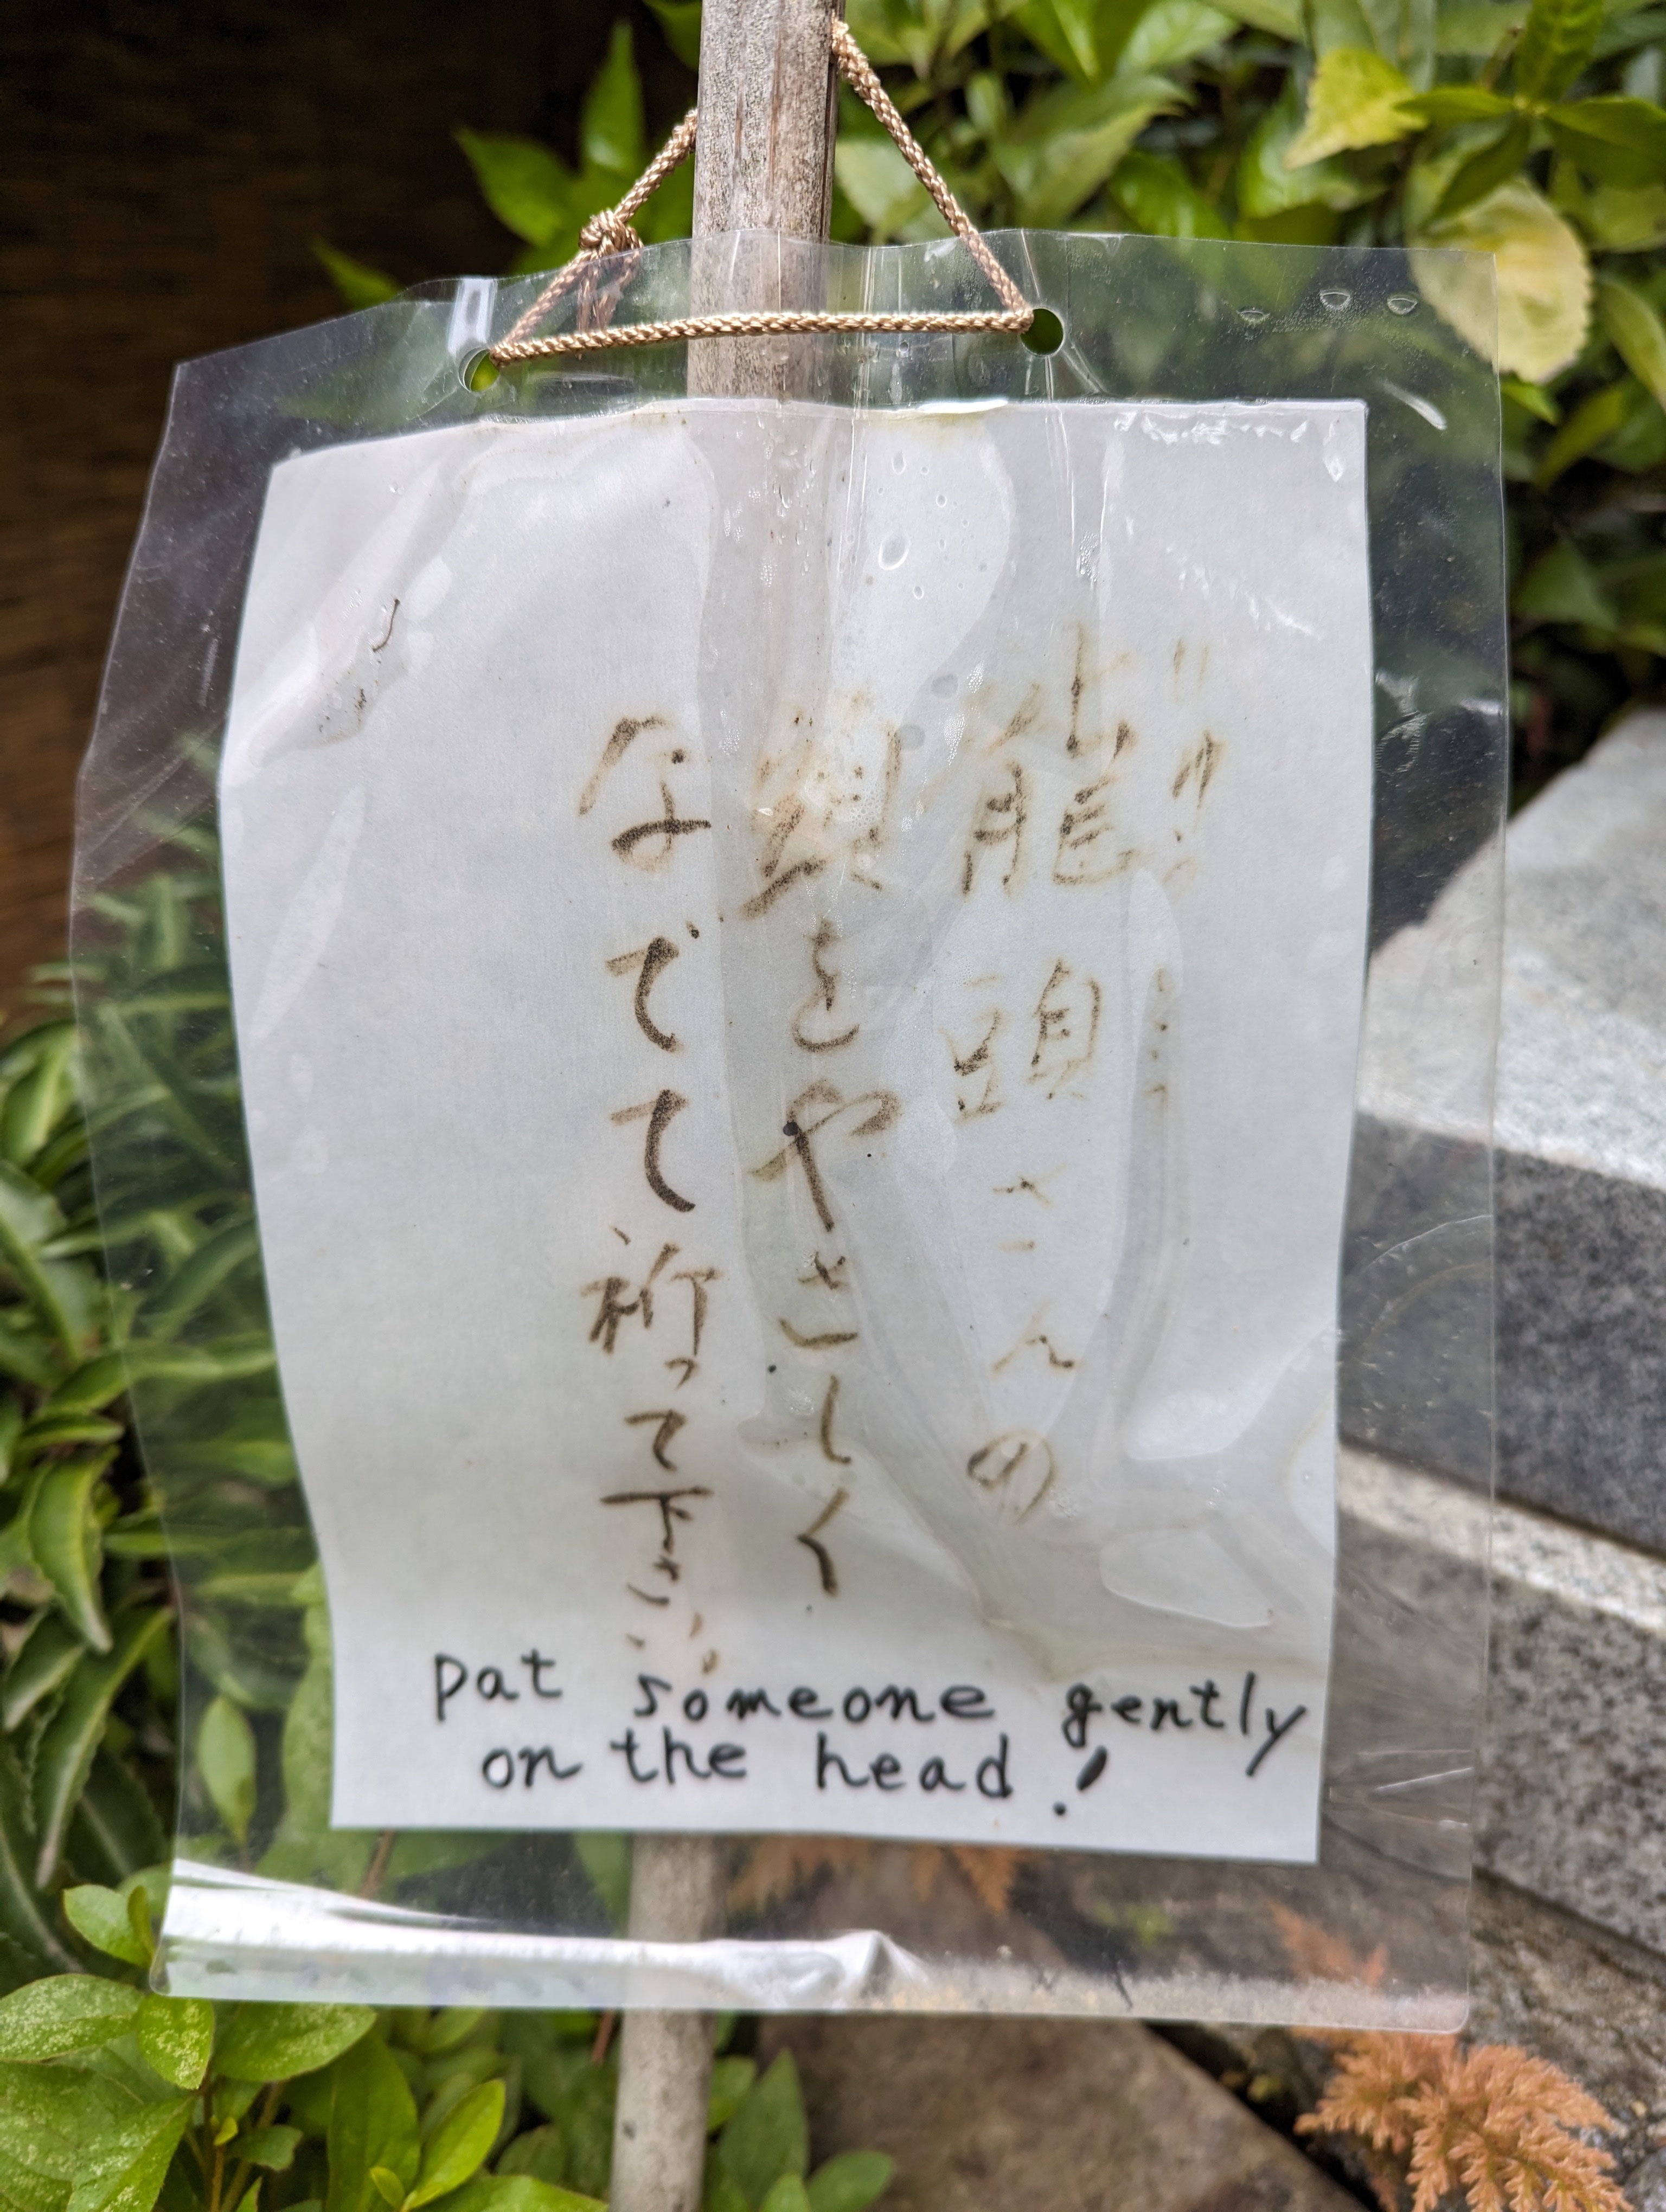 龍頭さんの
頭をやさしく
なでて祈って下さい。
pat someone gently
on the head!